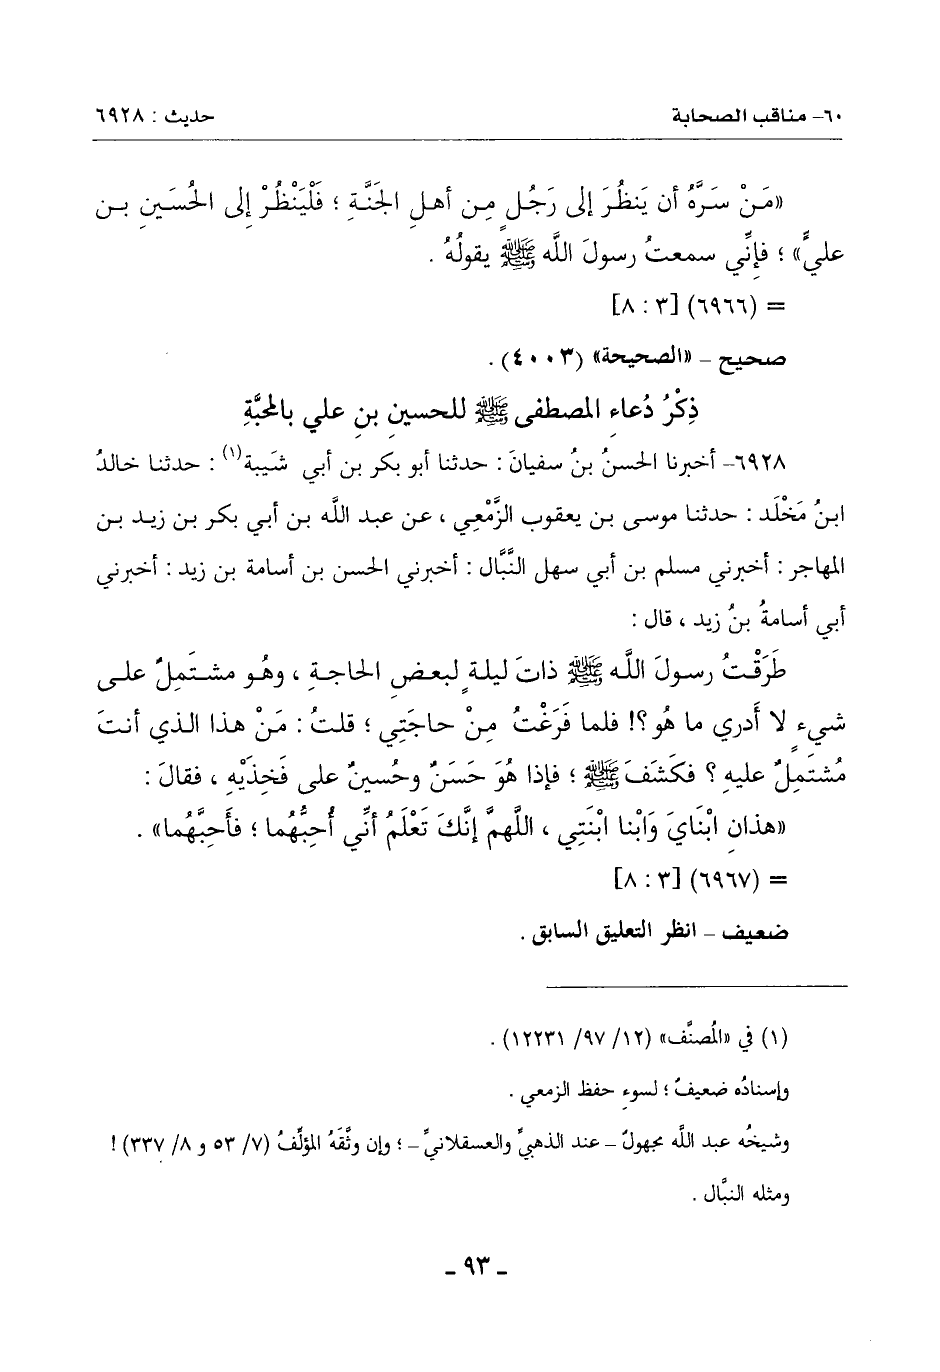 ٦٠- مناقب الصحابة حديث : ٦٩٢٨
«مَنْ سَرَّهُ أن يَنظُرَ إلى رَجُلٍ مِن أهلِ الجَنَّةِ ؛ فَلْيَنْظُرْ إلى الحُسَينِ بنِ
عليٍّ» ؛ فإنِّي سمعتُ رسولَ اللَّه ﷺ يقولُهُ .
= (٦٩٦٦) [٣ : ٨]
صحيح – «الصحيحة» (٤٠٠٣) .
ذِكْرُ دُعاءِ المصطفى ﷺ للحسينِ بنِ علي بالمحبَّةِ
٦٩٢٨- أخبرنا الحسنُ بنُ سفيانَ : حدثنا أبو بكر بن أبي شَيبة(١) : حدثنا خالدُ
ابنُ مَخْلَد : حدثنا موسى بن يعقوب الزَّمْعِي ، عن عبد اللَّه بن أبي بكر بن زيد بن
المهاجر : أخبرني مسلم بن أبي سهل النَّبَّال : أخبرني الحسن بن أسامة بن زيد : أخبرني
أبي أسامةُ بنُ زيد ، قال :
طَرَقْتُ رسولَ اللَّه ﷺ ذاتَ ليلةٍ لبعضِ الحاجةِ ، وهُو مشتَمِلٌ على
شيءٍ لا أَدري ما هُو ؟! فلما فَرَغْتُ مِنْ حاجَتِي ؛ قلتُ : مَنْ هذا الذي أنتَ
مُشتَمِلٌ عليهِ ؟ فكَشَفَ ﷺ ؛ فإذا هُوَ حَسَنٌ وحُسينٌ على فَخِذَيْهِ ، فقالَ :
«هذانِ ابْنَايَ وَابْنا ابْنَتِي ، اللَّهمَّ إنَّكَ تَعْلَمُ أنِّي أُحِبُّهُما ؛ فأَحِبَّهُما» .
= (٦٩٦٧) [٣ : ٨]
ضعيف – انظر التعليق السابق .
(١) في «المُصنَّف» (١٢/ ٩٧/ ١٢٢٣١) .
وإسنادُه ضعيفٌ ؛ لسوءِ حفظ الزمعي .
وشيخُه عبد اللَّه مجهولٌ – عند الذهبيِّ والعسقلانيِّ – ؛ وإن وثَّقَهُ المؤلِّفُ (٧/ ٥٣ و ٨/ ٣٣٧) !
ومثله النبَّال .
- ٩٣ -